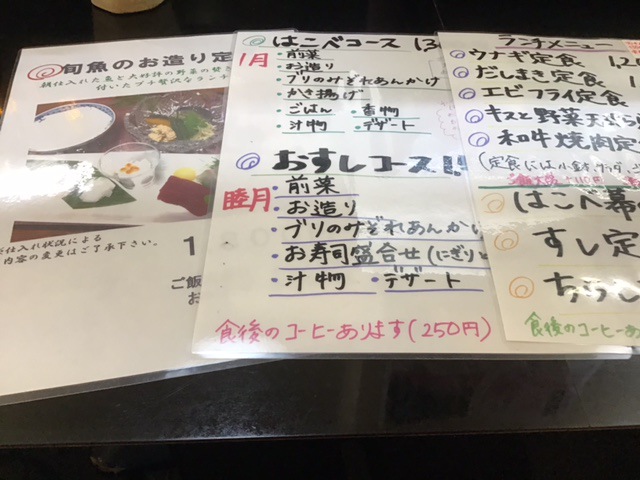 旬魚のお造り定
朝仕入れた魚と大好評の野菜の炊き
付いたプチ贅沢なラン
仕入れ状況による
内容の変更はご了承下さい。
1
ご飯
お
はこべコース 13
1月
・前菜
・お造り
・ブリのみぞれあんかけ
・かき揚げ
・ごはん ・香物
・汁物 ・デザート
おすしコース
睦月
・前菜
・お造り
・ブリのみぞれあんかけ
・お寿司盛合せ(にぎりと
・汁物 ・デザート
食後のコーヒーあります(250円)
ランチメニュー
・ウナギ定食 120
・だしまき定食 1
・エビフライ定食
・キスと野菜天ぷら
・和牛焼肉定
(定食には小鉢,サラダ,ご
ご飯大盛 +110円
はこべ幕
すし定
ちらし
食後のコーヒーあ